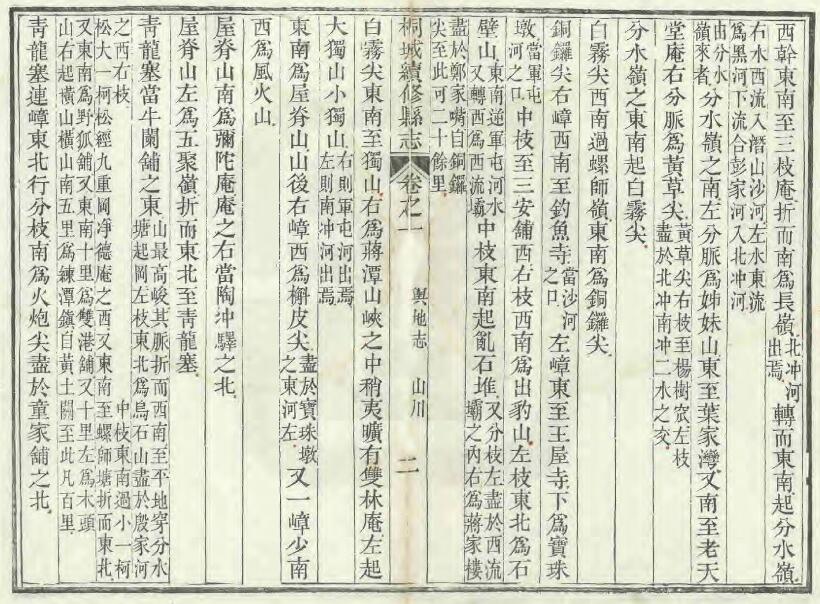 西幹東南至三枝庵折而南爲長嶺北冲河出焉轉而東南起分水嶺
右水西流入潛山沙河左水東流爲黑河下流合彭家河入北冲河
由分水嶺來者分水嶺之南左分脈爲姊妹山東至葉家灣又南至老天
堂庵右分脈爲黃草尖黃草尖右枝至楊樹宼左枝盡於北冲南冲二水之交
分水嶺之東南起白霧尖
白霧尖西南過螺師嶺東南爲銅鑼尖
銅鑼尖右嶂西南至釣魚寺當沙河之口左嶂東至王屋寺下爲寶珠
墩當軍屯河之口中枝至三安舖西右枝西南爲出豹山左枝東北爲石
壁山東南逆軍屯河水又轉西爲西流壩中枝東南起亂石堆又分枝左盡於西流壩之丙右爲蔣家樓
盡於鄭家嘴自銅鑼尖至此可二十餘里
桐城續修縣志 卷之一 輿地志 山川 二
白霧尖東南至獨山右爲蔣潭山峽之中稍夷曠有雙林庵左起
大獨山小獨山右則軍屯河出焉左則南冲河出焉
東南爲屋脊山山後右嶂西爲槲皮尖盡於寶珠墩之東河左又一嶂少南
西爲風火山
屋脊山南爲彌陀庵庵之右當陶冲驛之北
屋脊山左爲五聚嶺折而東北至靑龍塞
靑龍塞當牛闌舖之東山最高峻其脈折而西南至平地穿分水塘起岡左枝東北爲烏石山盡於殷家河
之西右枝中枝東南過小一柯松大一柯松經九重岡淨德庵之西又東南至螺師塘折而東北
又東南爲野狐舖又東南十里爲雙港舖又十里左爲木頭山右起橫山橫山南五里爲練潭鎭自黃土關至此凡百里
靑龍塞連嶂東北行分枝南爲火炮尖盡於童家舖之北